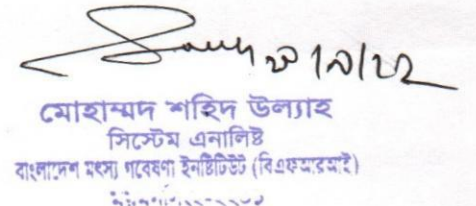 মোহাম্মদ শহিদ উল্যাহ
সিস্টেম এনালিষ্ট
বাংলাদেশ মৎস্য গবেষণা ইনষ্টিটিউট (বিএফআরআই)